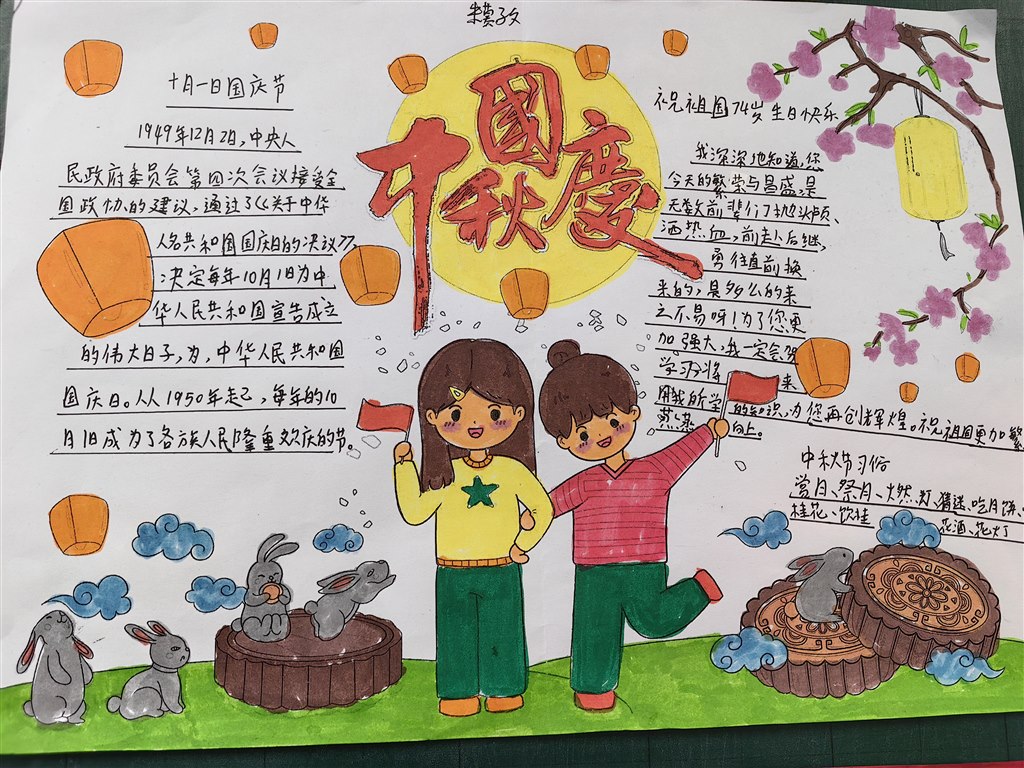 十月一日国庆节
1949年12月2日,中央人
民政府委员会第四次会议接受全
国政协的建议,通过了《关于中华
人名共和国国庆日的决议》,
决定每年10月1日为中
华人民共和国宣告成立
的伟大日子,为,中华人民共和国
国庆日。从从1950年起,每年的10
月1日成为了各族人民隆重欢庆的节。
中國
秋慶
祝祖国74岁生日快乐
我深深地知道,您
今天的繁荣与昌盛是
无数前辈们抛头颅、
洒热血,前赴后继,
勇往直前换
来的,具多么的来
之不易呀!为了您更
加强大,我一定会
学习,将来
用我所学的知识,为您再创辉煌。祝祖国更加繁
蒸蒸向上。
中秋节习俗
赏月、祭月、火燃灯、猜迷、吃月饼、
桂花、饮桂花酒、花灯